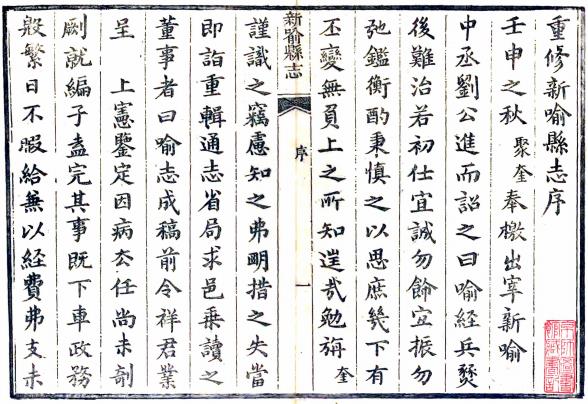 重修新喻縣志序
壬申之秋聚奎奉檄出宰新喻
中丞劉公進而詔之曰喻經兵燹
後難治若初仕宜誠勿餙宜振勿
弛鑑衡酌秉慎之以思庶幾下有
丕變無負上之所知逞哉勉旃奎
新喻縣志 序 一
謹識之竊慮知之弗明措之失當
即詣重輯通志省局求邑乗讀之
董事者曰喻志成稿前令祥君業
呈 上憲鑒定因病去任尚未剞
劂就編子盍完其事既下車政務
殷繁日不暇給兼以経費弗支未